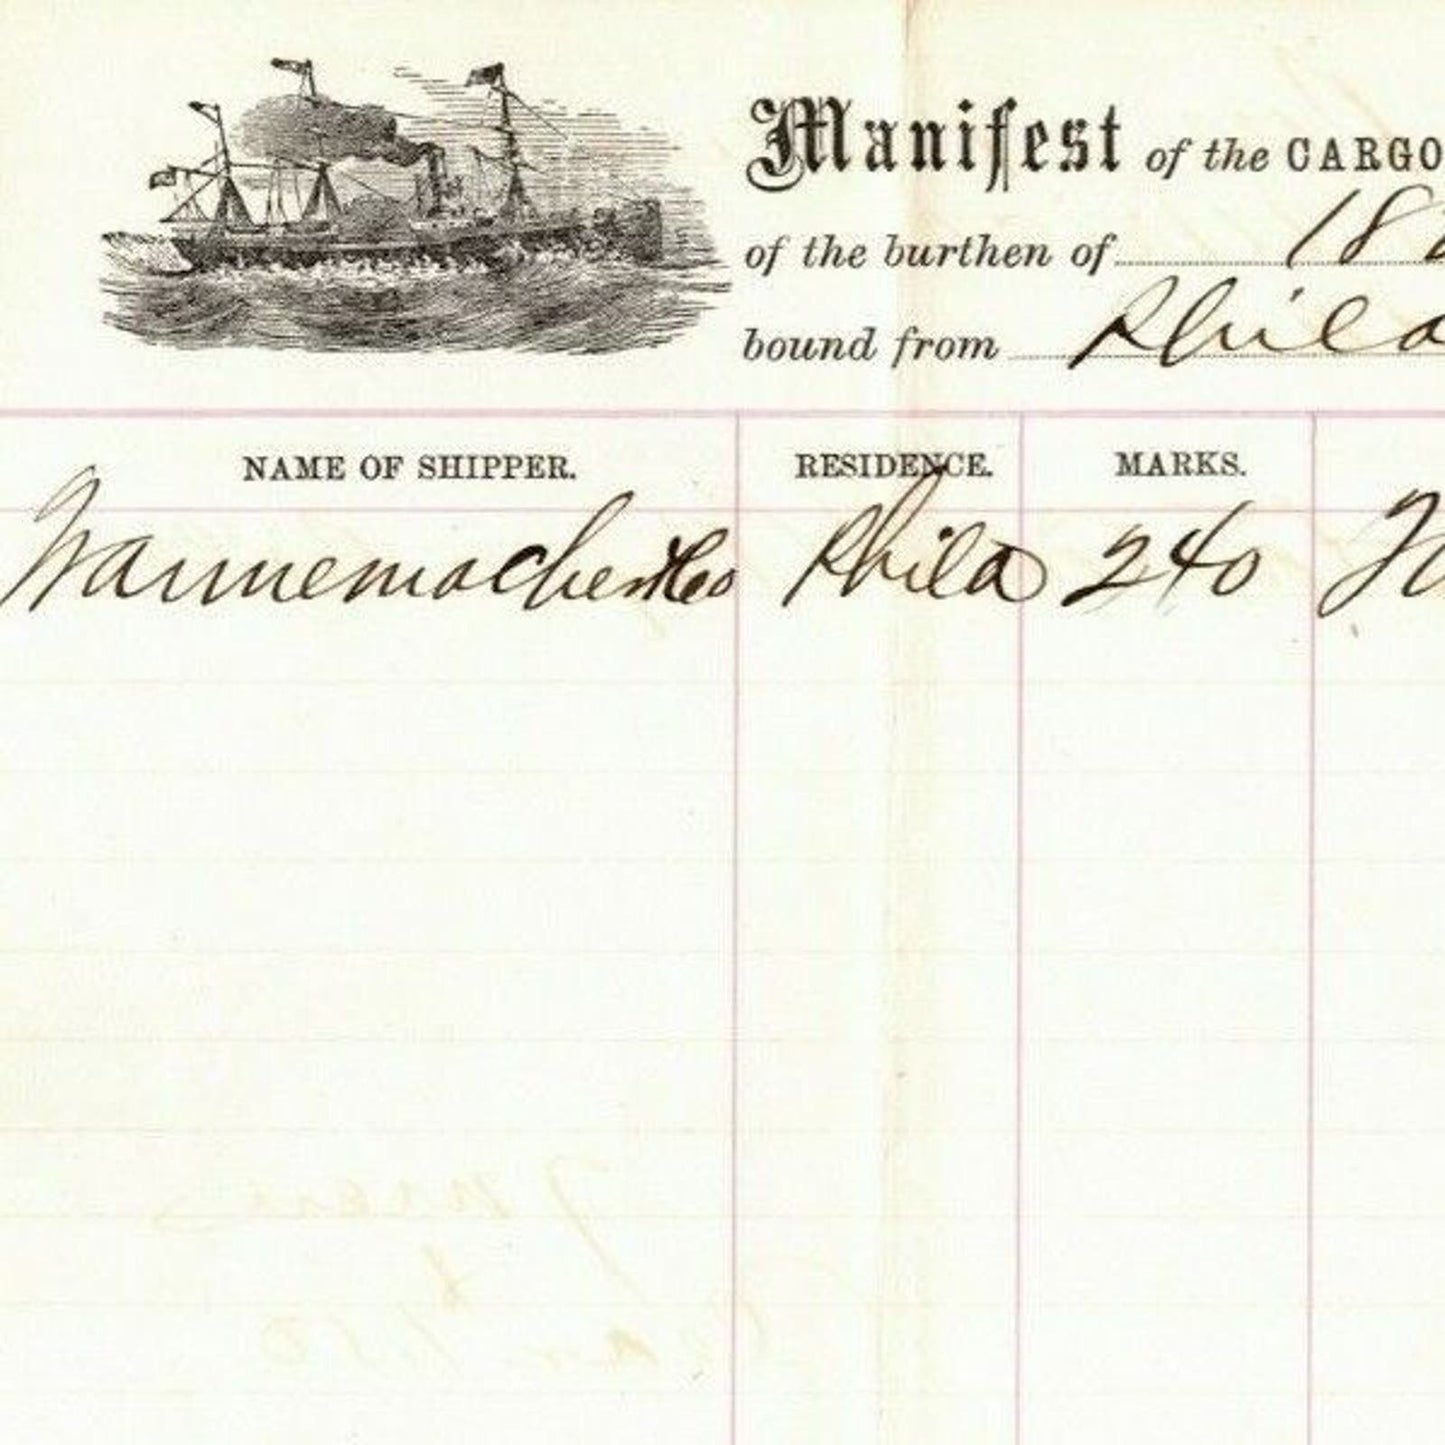 Manifest of the CARGO
of the burthen of 18
bound from Phila
NAME OF SHIPPER. RESIDENCE. MARKS.
Wannemacher & Co Phila 240